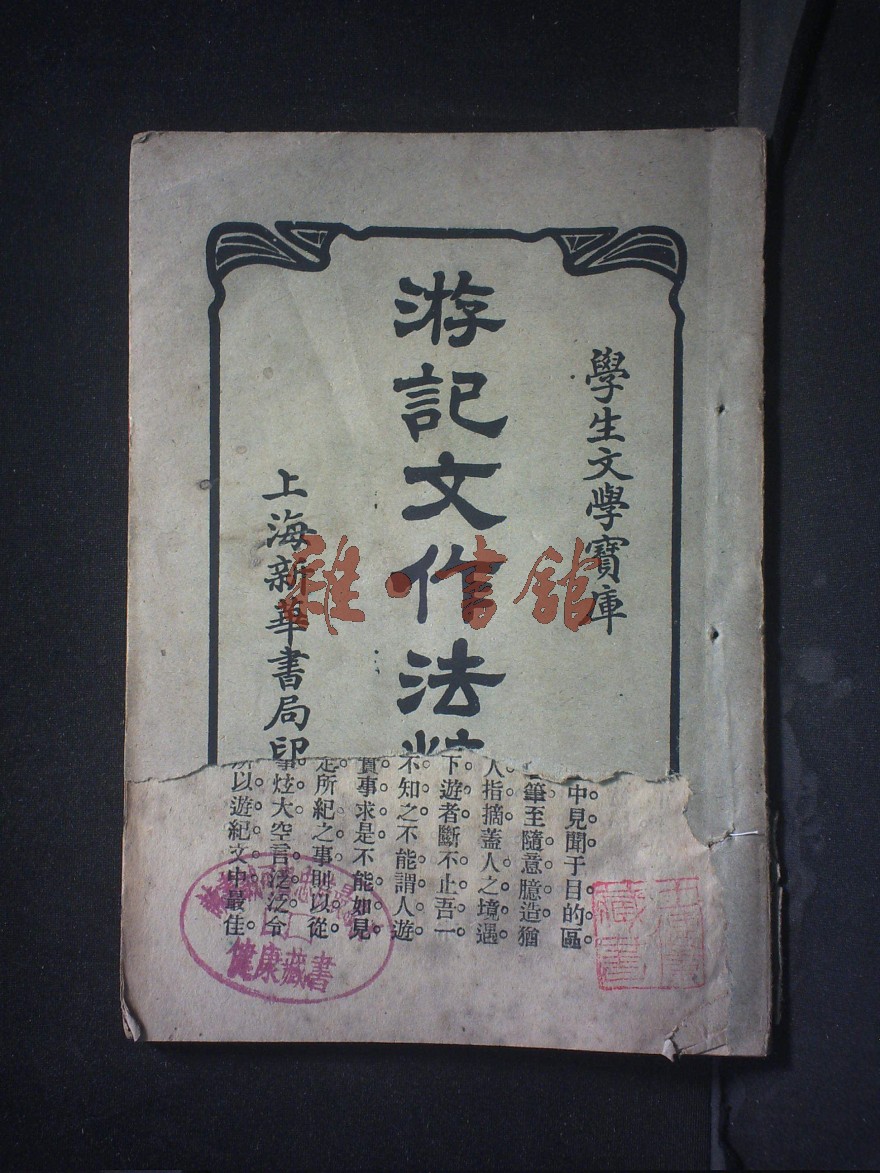 學生文學寶庫
游記文作法
上海新華書局印
中見聞于目的區
筆至隨意臆造猶
人指摘蓋人之境遇
下遊者斷不止吾一
不知之不能謂人遊
實事求是不能如見
定所紀之事則以從
炫大空言泛泛令
以遊紀文中最佳
健康藏書
藏書
雅·信舘